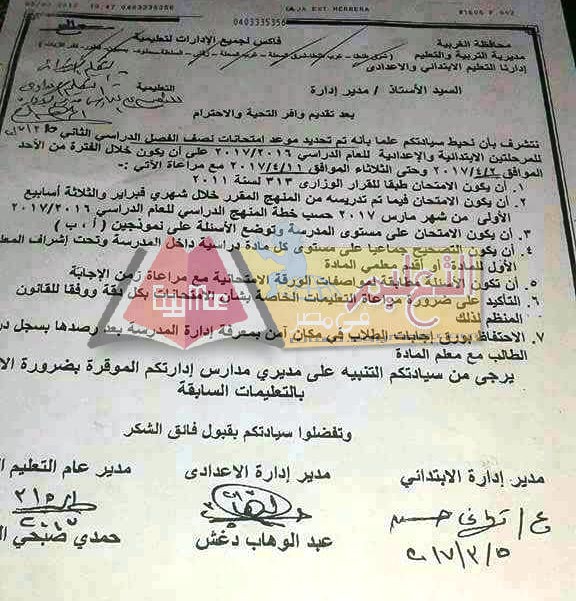 0403335356
محافظة الغربية
فاكس لجميع الإدارات لتعليمية
مديرية التربية والتعليم
إدارتا التعليم الابتدائي والاعدادى
السيد الأستاذ / مدير إدارة
التعليمية
بعد تقديم وافر التحية والاحترام
نتشرف بأن نحيط سيادتكم علما بأنه تم تحديد موعد امتحانات نصف الفصل الدراسي الثاني
للمرحلتين الابتدائية والإعدادية للعام الدراسي ٢٠١٧/٢٠١٦ على أن يكون خلال الفترة من الأحد
الموافق ٢٠١٧/٤/٢ وحتى الثلاثاء الموافق ٢٠١٧/٤/١١ مع مراعاة الأتي :-
١. أن يكون الامتحان طبقا للقرار الوزارى ٣١٣ لسنة ٢٠١١
٢. أن يكون الامتحان فيما تم تدريسه من المنهج المقرر خلال شهري فبراير والثلاثة أسابيع
الأولى من شهر مارس ٢٠١٧ حسب خطة المنهج الدراسي للعام الدراسي ٢٠١٧/٢٠١٦
٣. أن يكون الامتحان على مستوى المدرسة وتوضع الأسئلة على نموذجين ( أ ، ب )
٤. أن يكون التصحيح جماعيا على مستوى كل مادة دراسية داخل المدرسة وتحت إشراف المعل
الأول للمادة أو أقدم معلمي المادة
٥. أن تكون الأسئلة مطابقة لمواصفات الورقة الامتحانية مع مراعاة زمن الإجابة
٦. التأكيد على ضرورة مراعاة التعليمات الخاصة بشأن الامتحانات بكل دقة ووفقا للقانون
المنظم لذلك
٧. الاحتفاظ بورق إجابات الطلاب في مكان آمن بمعرفة إدارة المدرسة بعد رصدها بسجل در
الطالب مع معلم المادة
يرجى من سيادتكم التنبيه على مديري مدارس إدارتكم الموقرة بضرورة الا
بالتعليمات السابقة
وتفضلوا سيادتكم بقبول فائق الشكر
مدير إدارة الابتدائي
مدير إدارة الاعدادى
مدير عام التعليم ا
عبد الوهاب دغش
حمدي صبحي ال
٢٠١٧/٣/٥
التعليم
في مصر